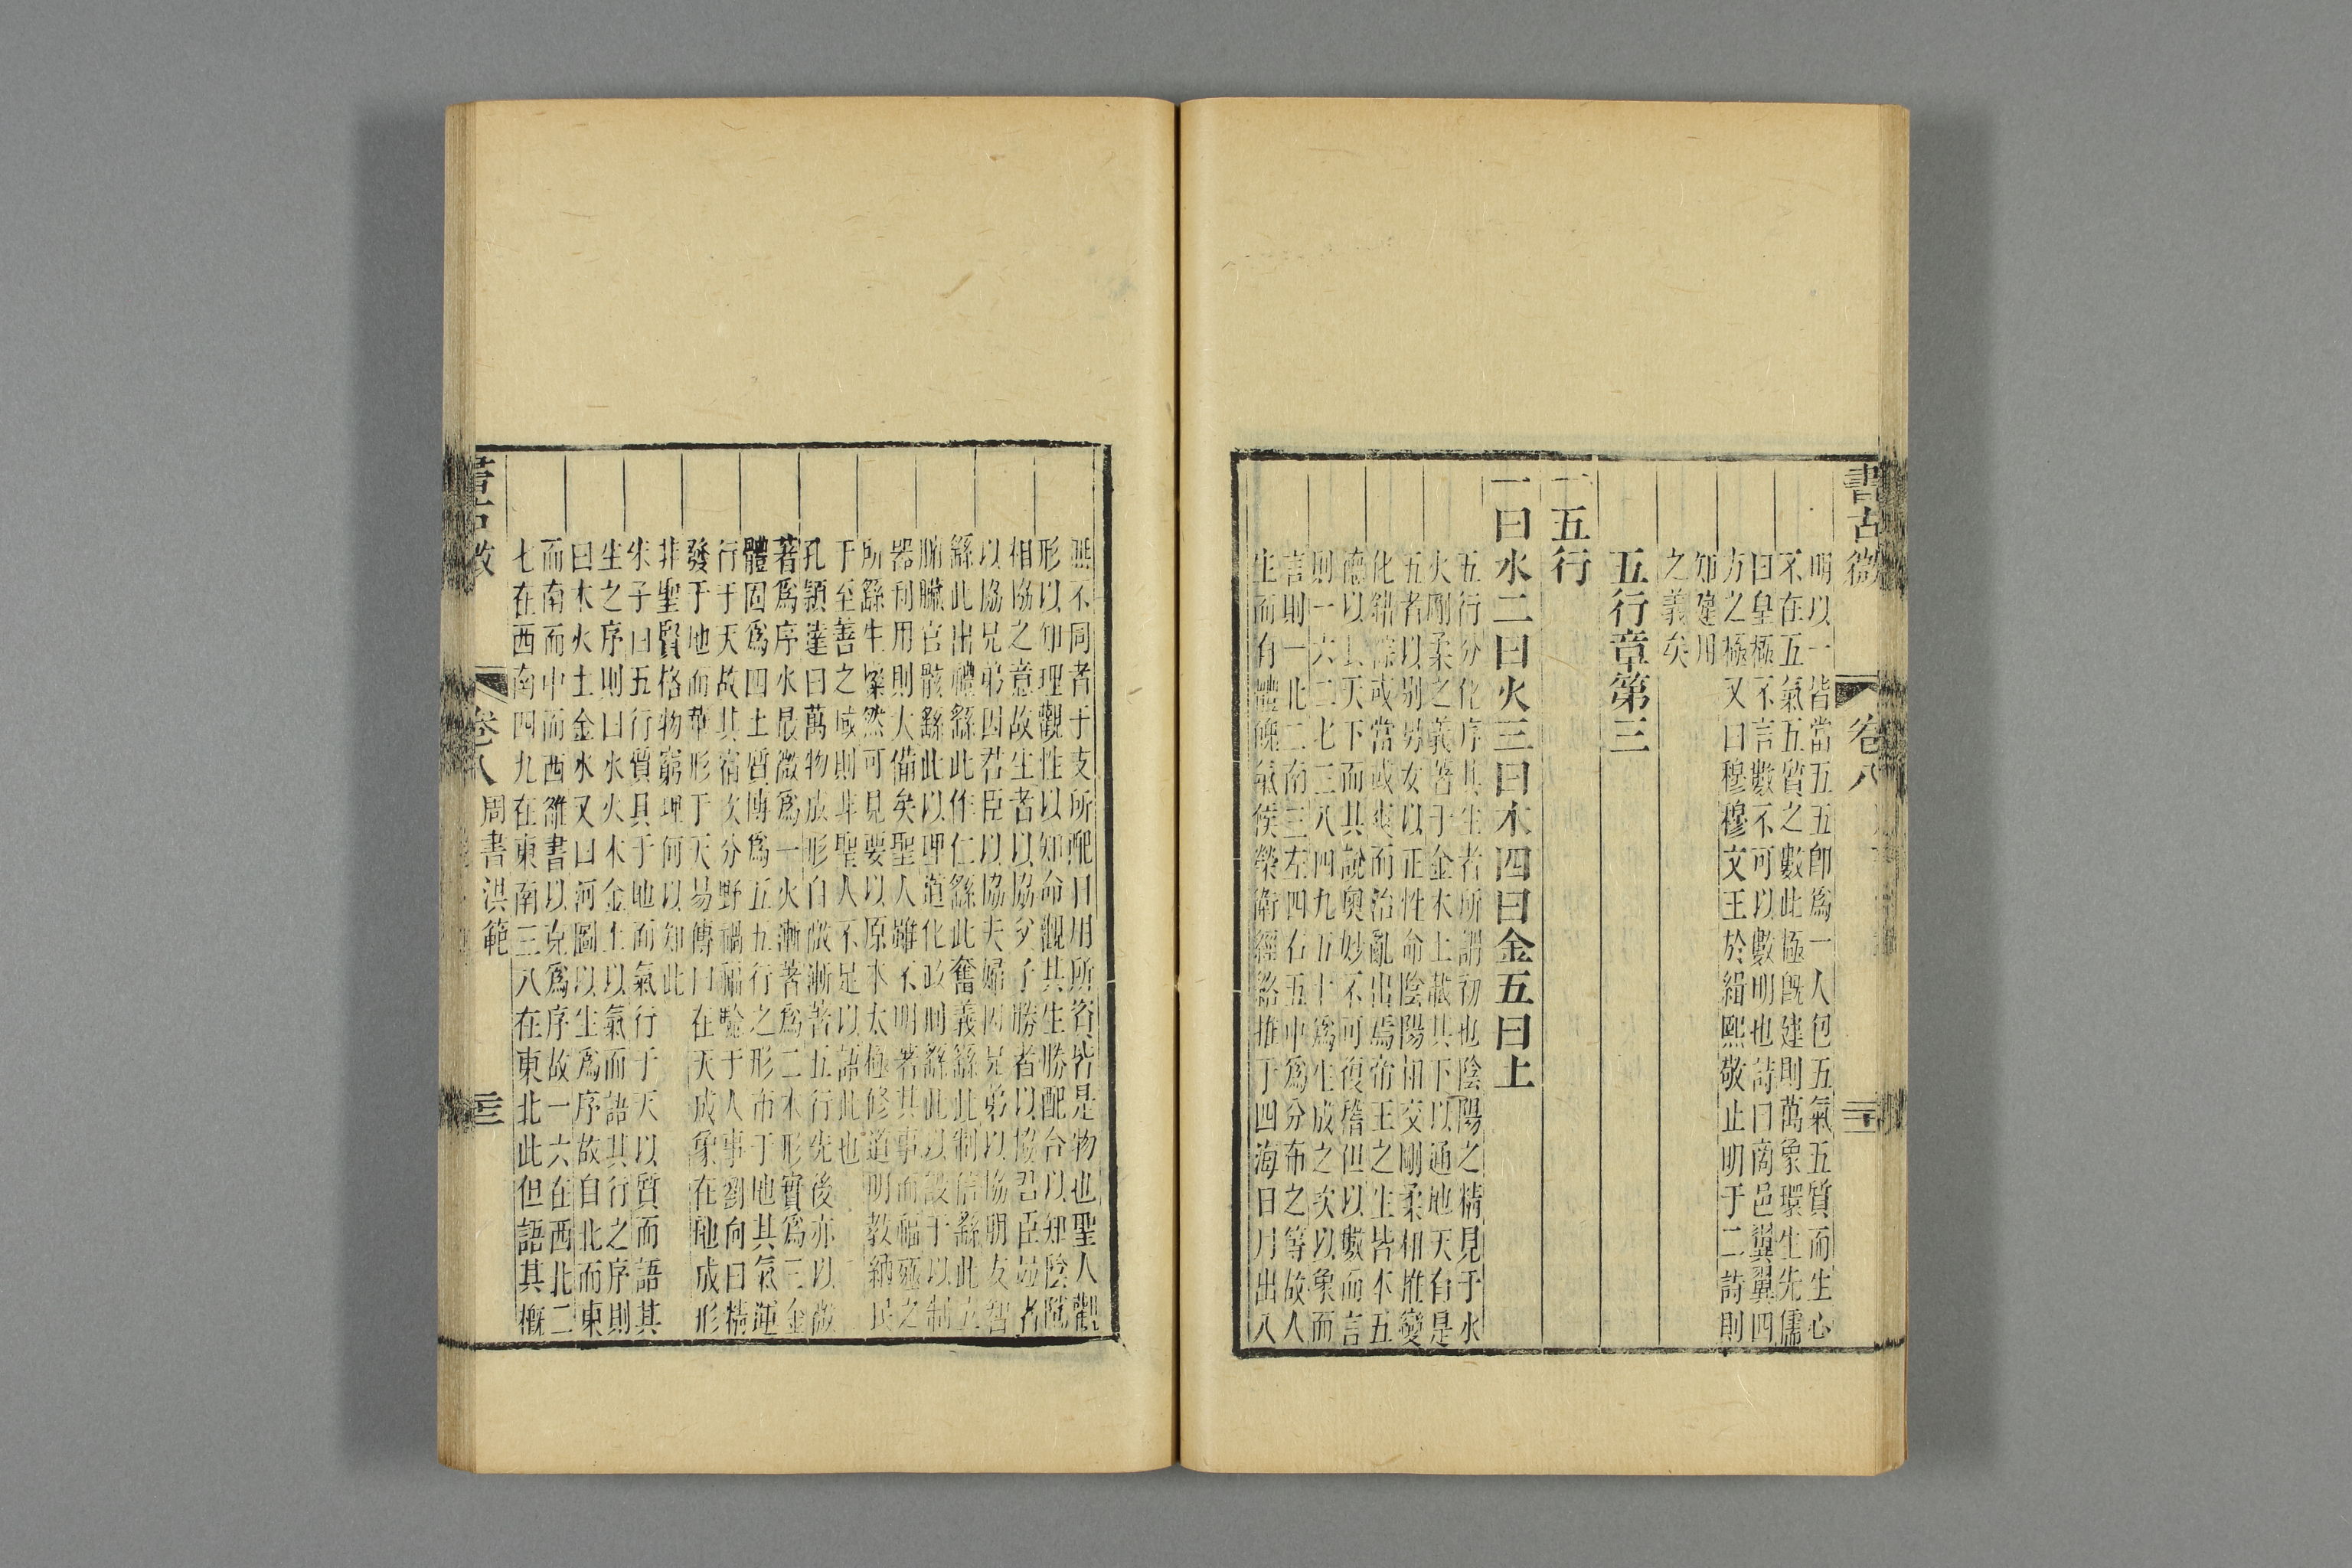 書古微
卷八
明以一皆當五五卽爲一人包五氣五質而生心
不在五氣五質之數此極旣建則萬象環生先儒
曰皇極不言數不可以數明也詩曰商邑翼翼四
方之極又曰穆穆文王於緝熙敬止明于二詩則
知建用
之義矣
五行章第三
一五行
一曰水二曰火三曰木四曰金五曰土
五行分化序其生者所謂初也陰陽之精見于水
火剛柔之義著于金木土載其下以通地天有是
五者以別男女以正性命陰陽相交剛柔相推變
化錯綜或當或爽而治亂出焉帝王之生皆本五
德以王天下而其說奧妙不可復稽但以數而言
則一六二七三八四九五十爲生成之次以象而
言則一北二南三左四右五中爲分布之等故人
生而有體魄氣候榮衛經絡推于四海日月出入
無不同者于支所配日用所資皆是物也聖人觀
形以知理觀性以知命觀其生勝配合以知陰陽
相協之意故生者以協父子勝者以協君臣
以協兄弟因君臣以協夫婦因兄弟以協朋友智
繇此出禮繇此作仁繇此奮義繇此制信繇此立
腑臟官骸繇此以理道化政刑繇此以設于以制
器利用則大備矣聖人雖不明著其事而福極之
所繇生燦然可見要以原本太極修道明教納民
于至善之域則非聖人不足以語此也
孔穎達曰萬物成形自微漸著五行先後亦以微
著爲序水最微爲一火漸著爲二木形實爲三金
體固爲四土質博爲五五行之形布于地其氣運
行于天故其宿次分野禍福驗于人事劉向曰精
發于地而華形于天易傳曰在天成象在地成形
非聖賢格物窮理何以知此
朱子曰五行質具于地而氣行于天以質而語其
生之序則曰水火木金土以氣而語其行之序則
曰木火土金水又曰河圖以生爲序故自北而東
而南而中而西雒書以克爲序故一六在西北二
七在西南四九在東南三八在東北此但語其概
書古微
卷八
周書洪範
三